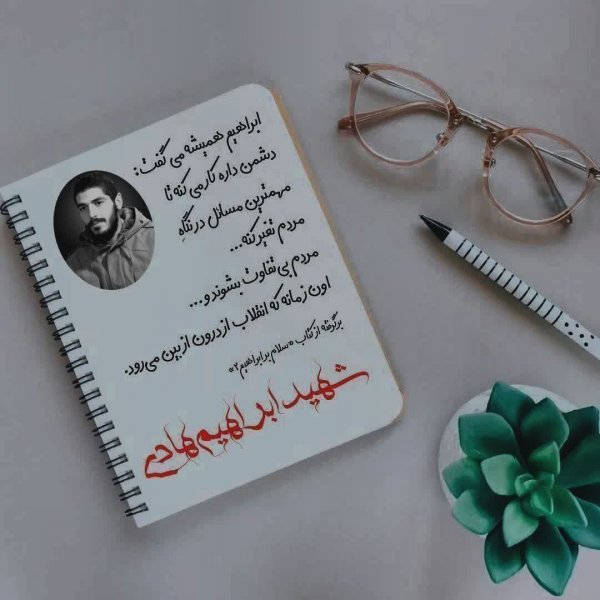 ابراهیم همیشه می گفت:
دشمن داره کار می کنه تا
مهمترین مسائل در نگاه
مردم تغیر کنه...
مردم بی تفاوت بشوند و...
اون زمانه که انقلاب از درون از بین می رود.
برگرفته از کتاب «سلام بر ابراهیم ۲»
شهید ابراهیم هادی